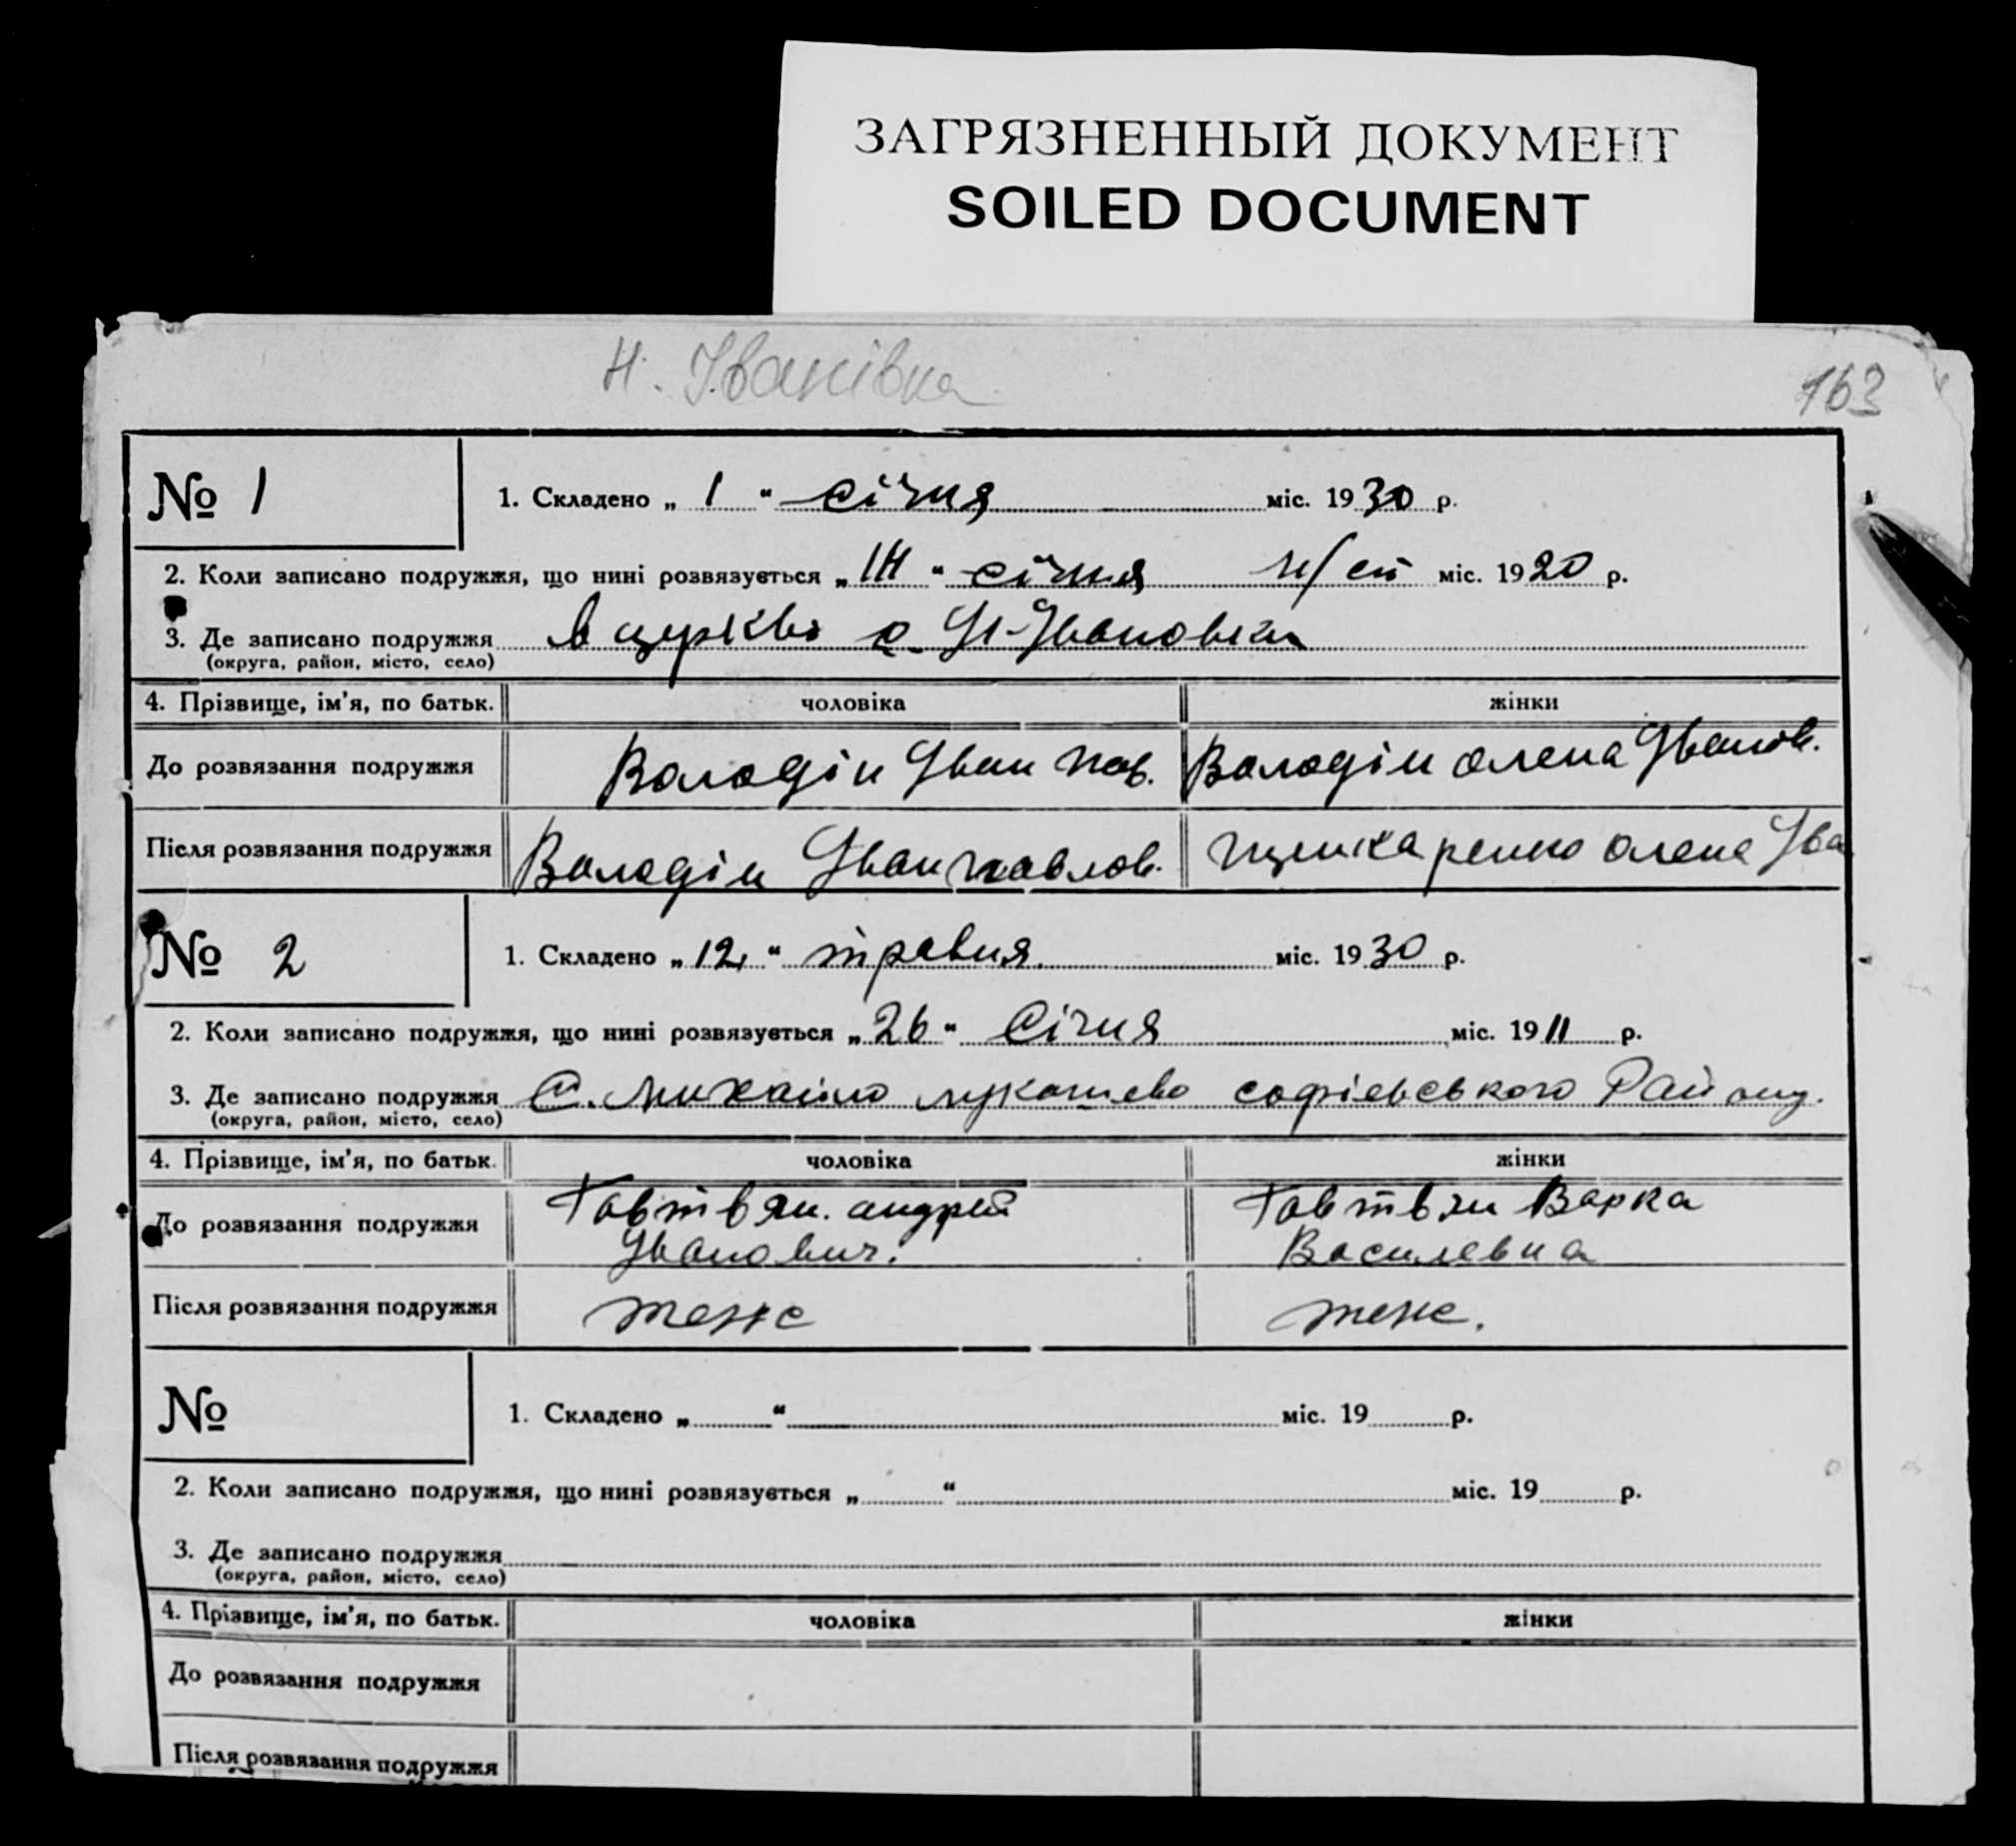 ЗАГРЯЗНЕННЫЙ ДОКУМЕНТ
SOILED DOCUMENT
Н. Іванівка
163
№ 1
1. Складено „ 1 “ січня міс. 1930 р.
2. Коли записано подружжя, що нині розвязується „ “ січня н/ст міс. 1920 р.
3. Де записано подружжя В церкві с. Н-Івановки
(округа, район, місто, село)
4. Прізвище, ім'я, по батьк. чоловіка жінки
До розвязання подружжя Володін Іван Пав. Володін Олена Іванов.
Після розвязання подружжя Володін Іван Павлов. Олена Іва
№ 2
1. Складено „ 12 “ травня міс. 1930 р.
2. Коли записано подружжя, що нині розвязується „ 26 “ Січня міс. 1911 р.
3. Де записано подружжя С. Михайло Лукашево софієвського Району.
(округа, район, місто, село)
4. Прізвище, ім'я, по батьк. чоловіка жінки
До розвязання подружжя Говтвян. андрей Говтвян Варка
Іванович. Василевна
Після розвязання подружжя теже теже.
№
1. Складено „ “ міс. 19 р.
2. Коли записано подружжя, що нині розвязується „ “ міс. 19 р.
3. Де записано подружжя
(округа, район, місто, село)
4. Прізвище, ім'я, по батьк. чоловіка жінки
До розвязання подружжя
Після розвязання подружжя